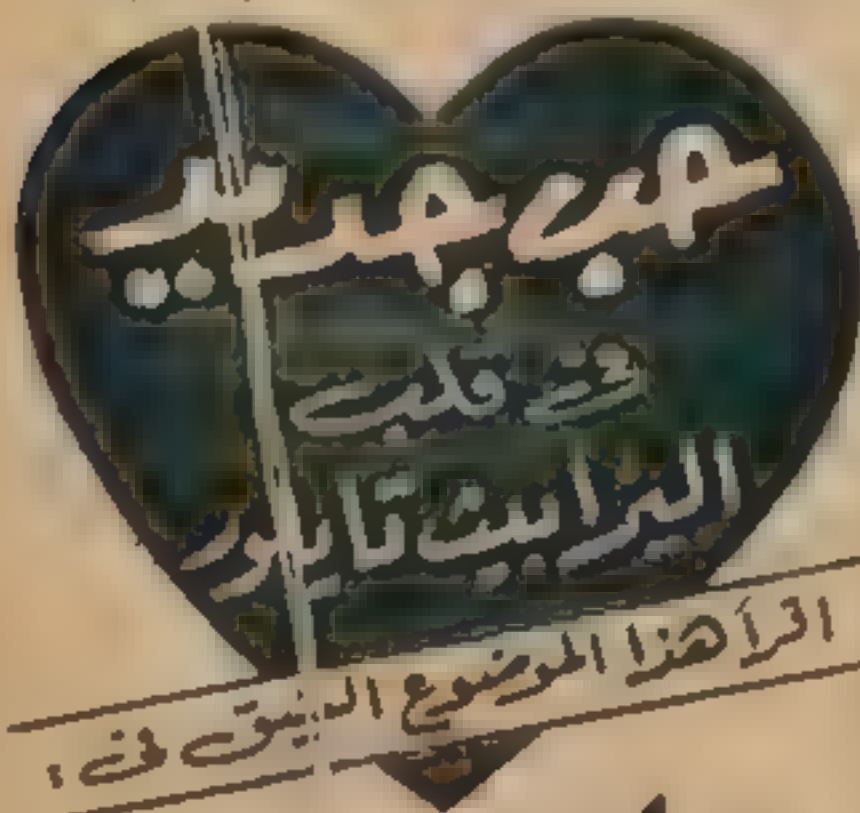 حب جديد
فى قلب
اليزابيث تايلور
اقرأ هذا الموضوع الشيق فى :